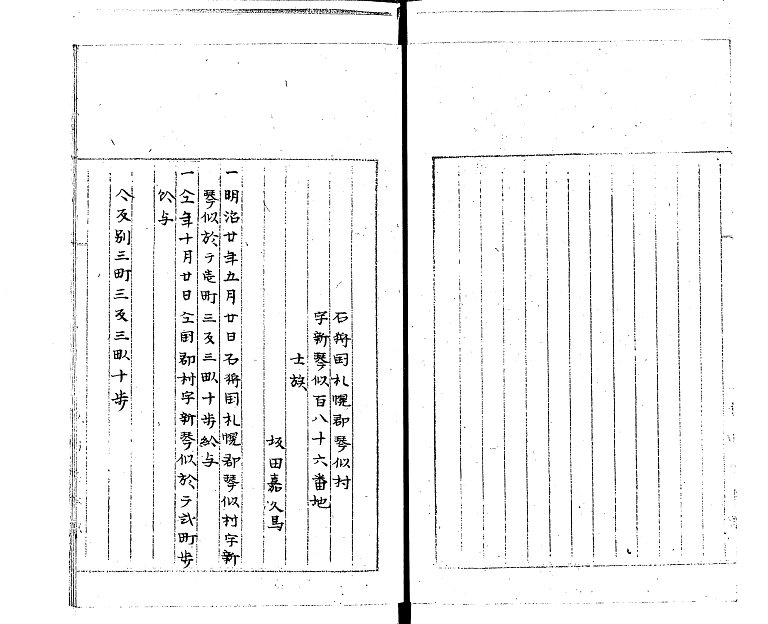 石狩国札幌郡琴似村
字新琴似百八十六番地
士族
坂田嘉久馬
一明治廿年五月廿日石狩国札幌郡琴似村字新
琴似於テ壱町三反三畝十歩給与
一仝年十月廿日仝国郡村字新琴似於テ弐町歩
給与
合反別三町三反三畝十歩